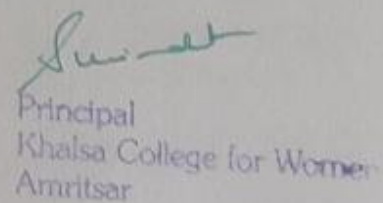 Principal
Khalsa College for Women
Amritsar